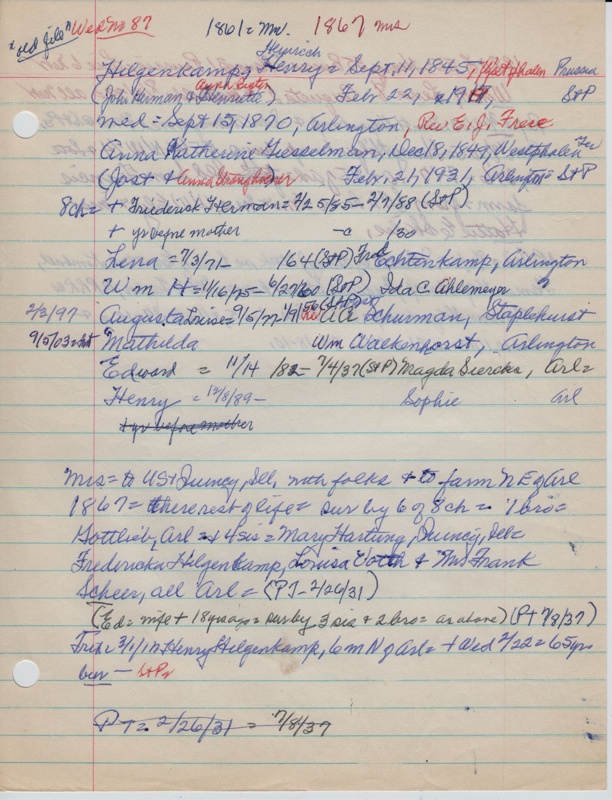 "old file" Wed No 87 1861 = Mr. 1867 Mrs
Heinrich
Hilgenkamp, Henry = Sept. 11, 1845, Westphalen Prussia
(John Herman & Henriette) Feb 22, 1917, S+P
med = Sept 15, 1870, Arlington, Rev E. J. Frese
Anna Katherine Giesselman, Dec 18, 1849, Westphalen Ger
(Jost & Anna) Feb. 21, 1931, Arlington = S+P
8ch = + Frederick Herman = 2/25/85 - 2/7/88 (S+P)
+ yr before mother -a /30
Lena = 7/3/71 - /64 (S+P) Fred Echtenkamp, Arlington
Wm H = 1/16/75 - 6/27/60 (S+P) Ida C Ahlemeyer
2/2/97 Augusta Louise = 9/5/77 - 9/ /56 (S+P) Rev A A Schurman, Staplehurst
9/5/03 = Mathilda Wm Wackenhorst, Arlington
Edward = 11/14 /82 - 7/4/37 (S+P) Magda Sierks, Arl =
Henry = 12/8/89 - Sophie Arl
+ yr before mother
Mrs = to US + Quincy, Ill, with folks & to farm N E of Arl
1867 = there rest of life = sur by 6 of 8 ch = 1 bro =
Gottlieb, Arl = + 4 sis = Mary Hartung, Quincy, Ill =
Fredericka Hilgenkamp, Louisa Voth & Mrs Frank
Scheer, all Arl = (PT - 2/26/31)
(Ed = wife + 18 yrs ago = sur by 3 sis + 2 bro = as above) (PT 7/8/37)
Henry Hilgenkamp, 6 m N of Arl = + Wed 2/22 = 65 yrs
bur — S+P
PT = 2/26/31 = 7/8/37